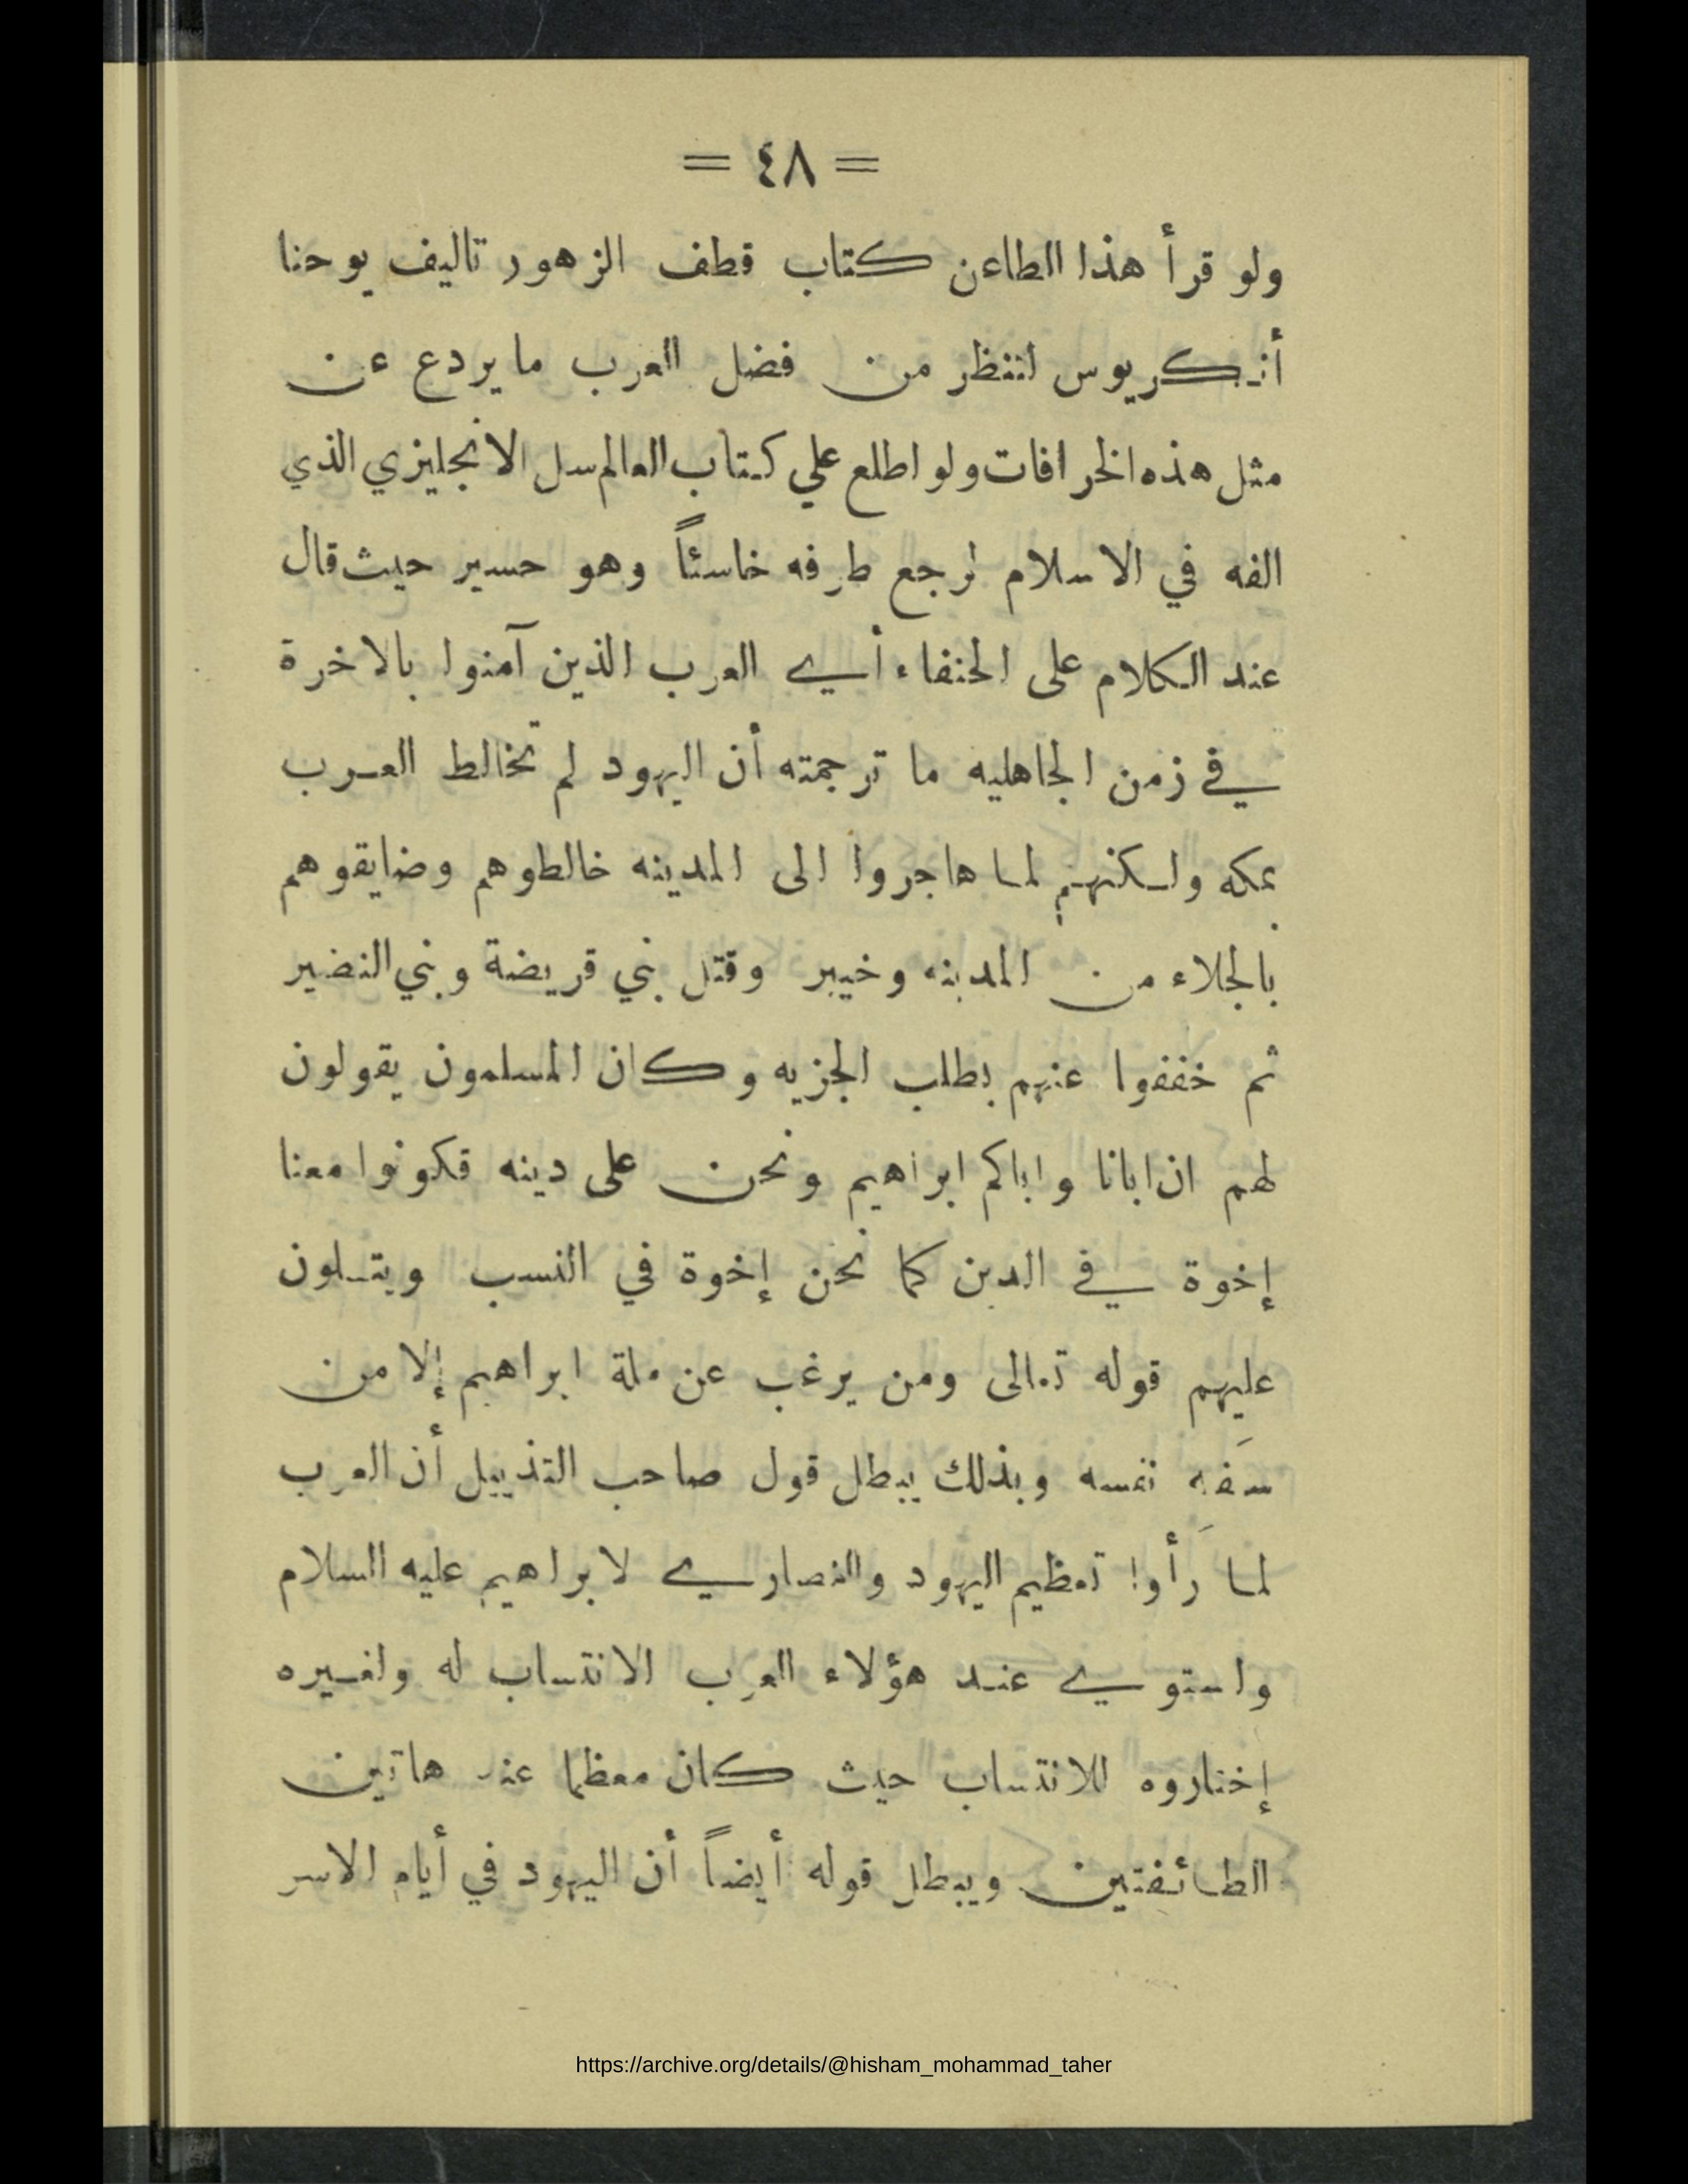 = ٤٨ =
ولو قرأ هذا الطاعن كتاب قطف الزهور تاليف يوحنا
أنكريوس لتنظر من فضل العرب ما يردع عن
مثل هذه الخرافات ولو اطلع علي كتاب العالم سل الانجليزي الذي
الفه في الاسلام لرجع طرفه خاسئاً وهو حسير حيث قال
عند الكلام على الحنفاء أي العرب الذين آمنوا بالاخرة
في زمن الجاهليه ما ترجمته أن اليهود لم تخالط العرب
بمكه ولكنهم لما هاجروا الى المدينه خالطوهم وضايقوهم
بالجلاء من المدينه وخيبر وقتل بني قريضة وبني النضير
ثم خففوا عنهم بطلب الجزيه وكان المسلمون يقولون
لهم ان ابانا واباكم ابراهيم ونحن على دينه فكونوا معنا
إخوة في الدين كما نحن إخوة في النسب ويتلون
عليهم قوله تعالى ومن يرغب عن ملة ابراهيم إلا من
سَفِه نفسه وبذلك يبطل قول صاحب التذييل أن العرب
لما رَأوا تعظيم اليهود والنصاري لابراهيم عليه السلام
واستوي عند هؤلاء العرب الانتساب له ولغيره
إختاروه للانتساب حيث كان معظما عند هاتين
الطائفتين ويبطل قوله أيضاً أن اليهود في أيام الاسر
https://archive.org/details/@hisham_mohammad_taher